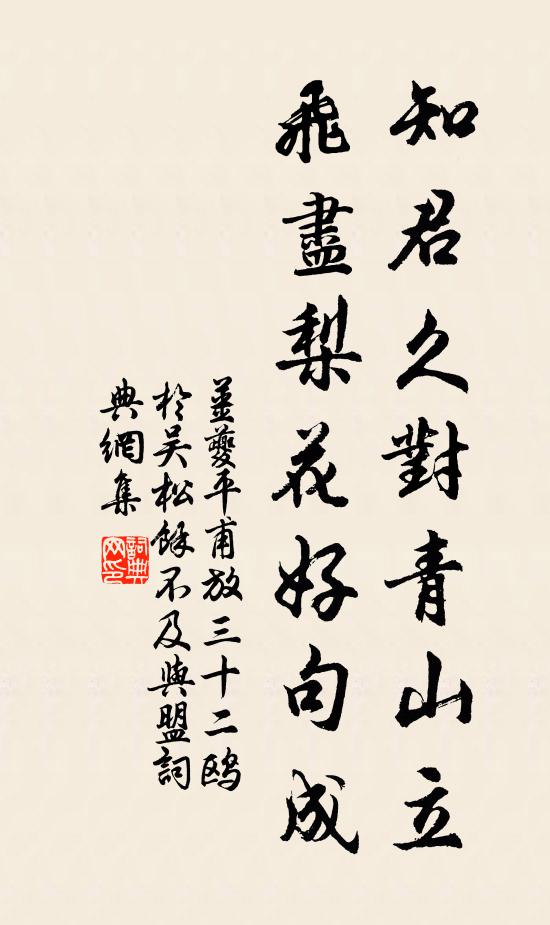 知君久對青山立
飛盡梨花好句成
姜夔平甫放三十二鷗
於吴松餘不及與盟詞
典網集
詞典網印